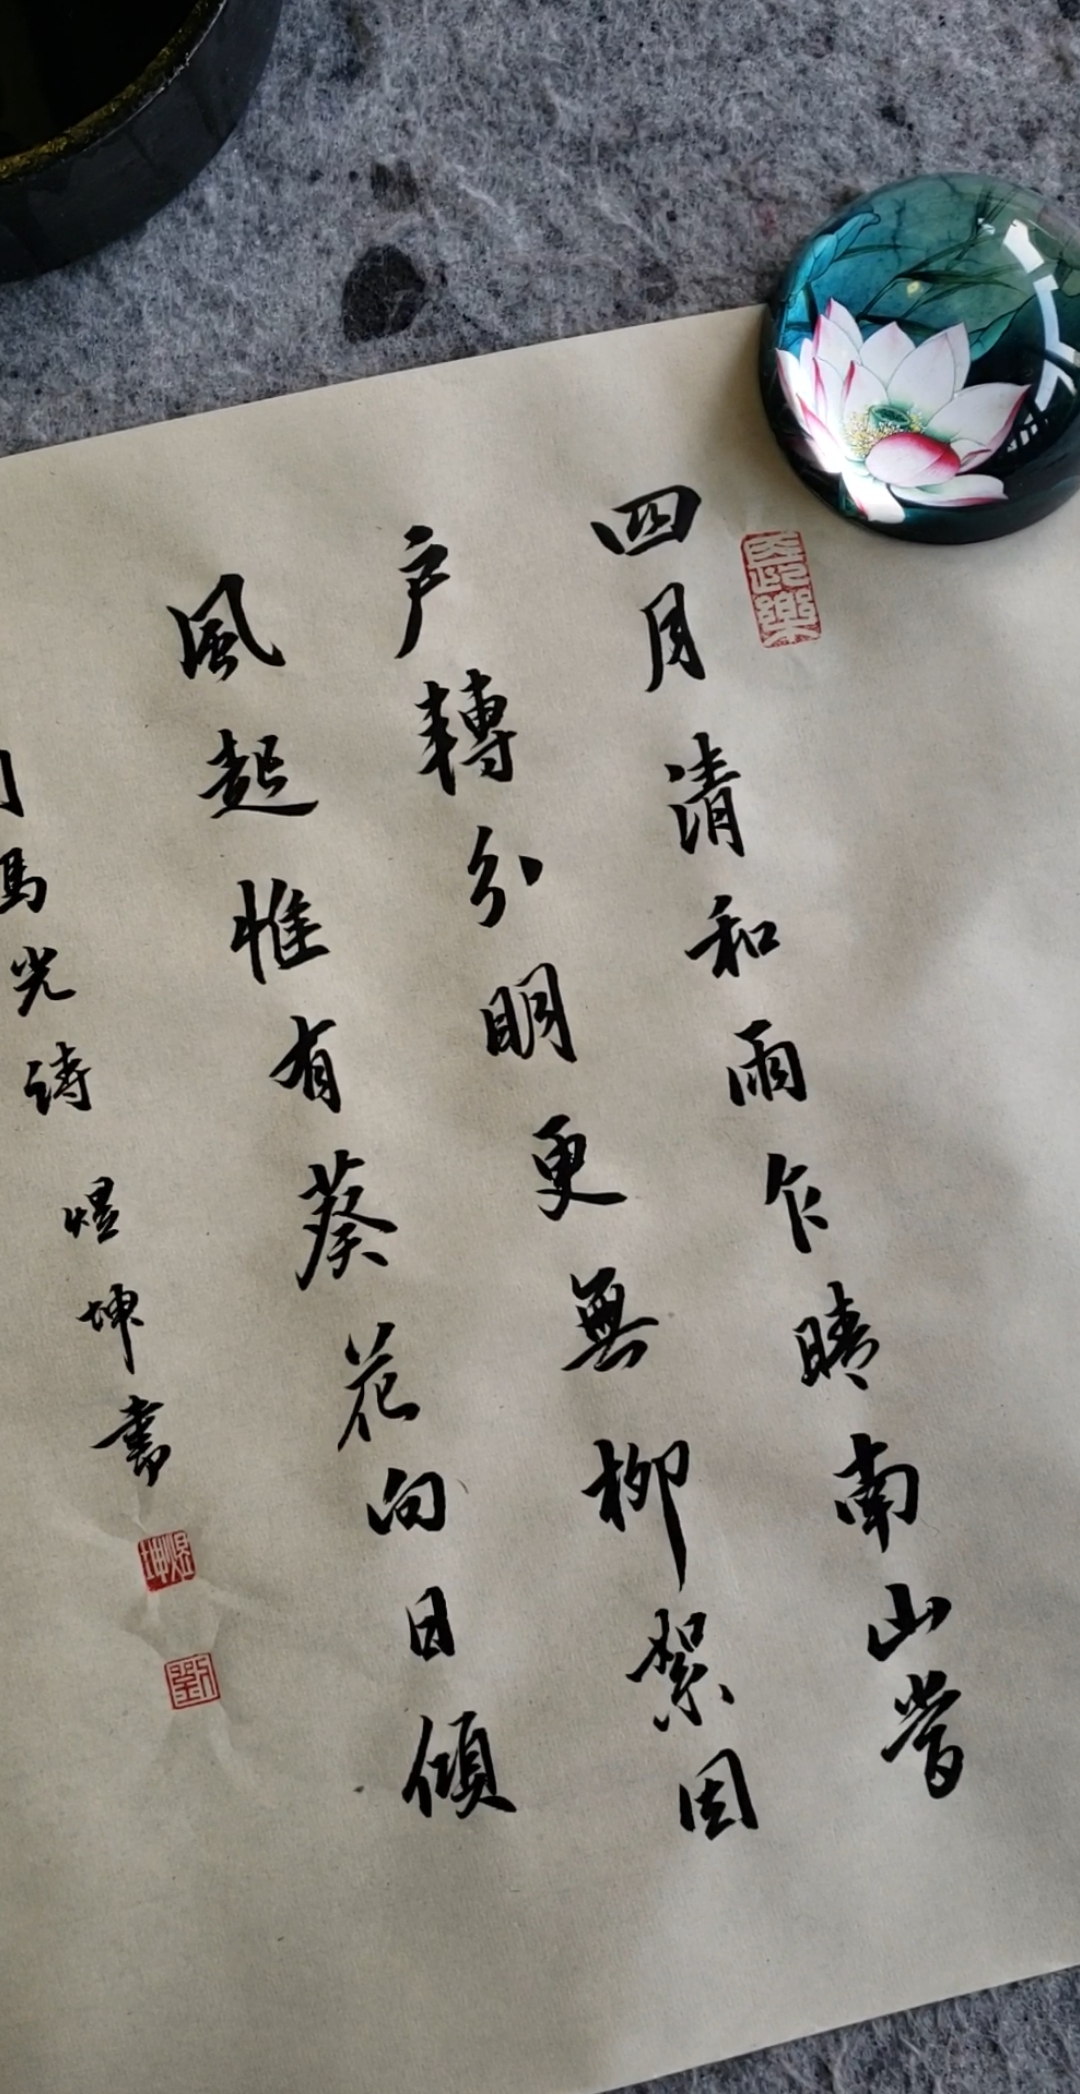 四月清和雨乍晴南山當
户轉分明更無柳絮因
風起惟有葵花向日傾
司馬光詩 煜坤書
煜坤
劉